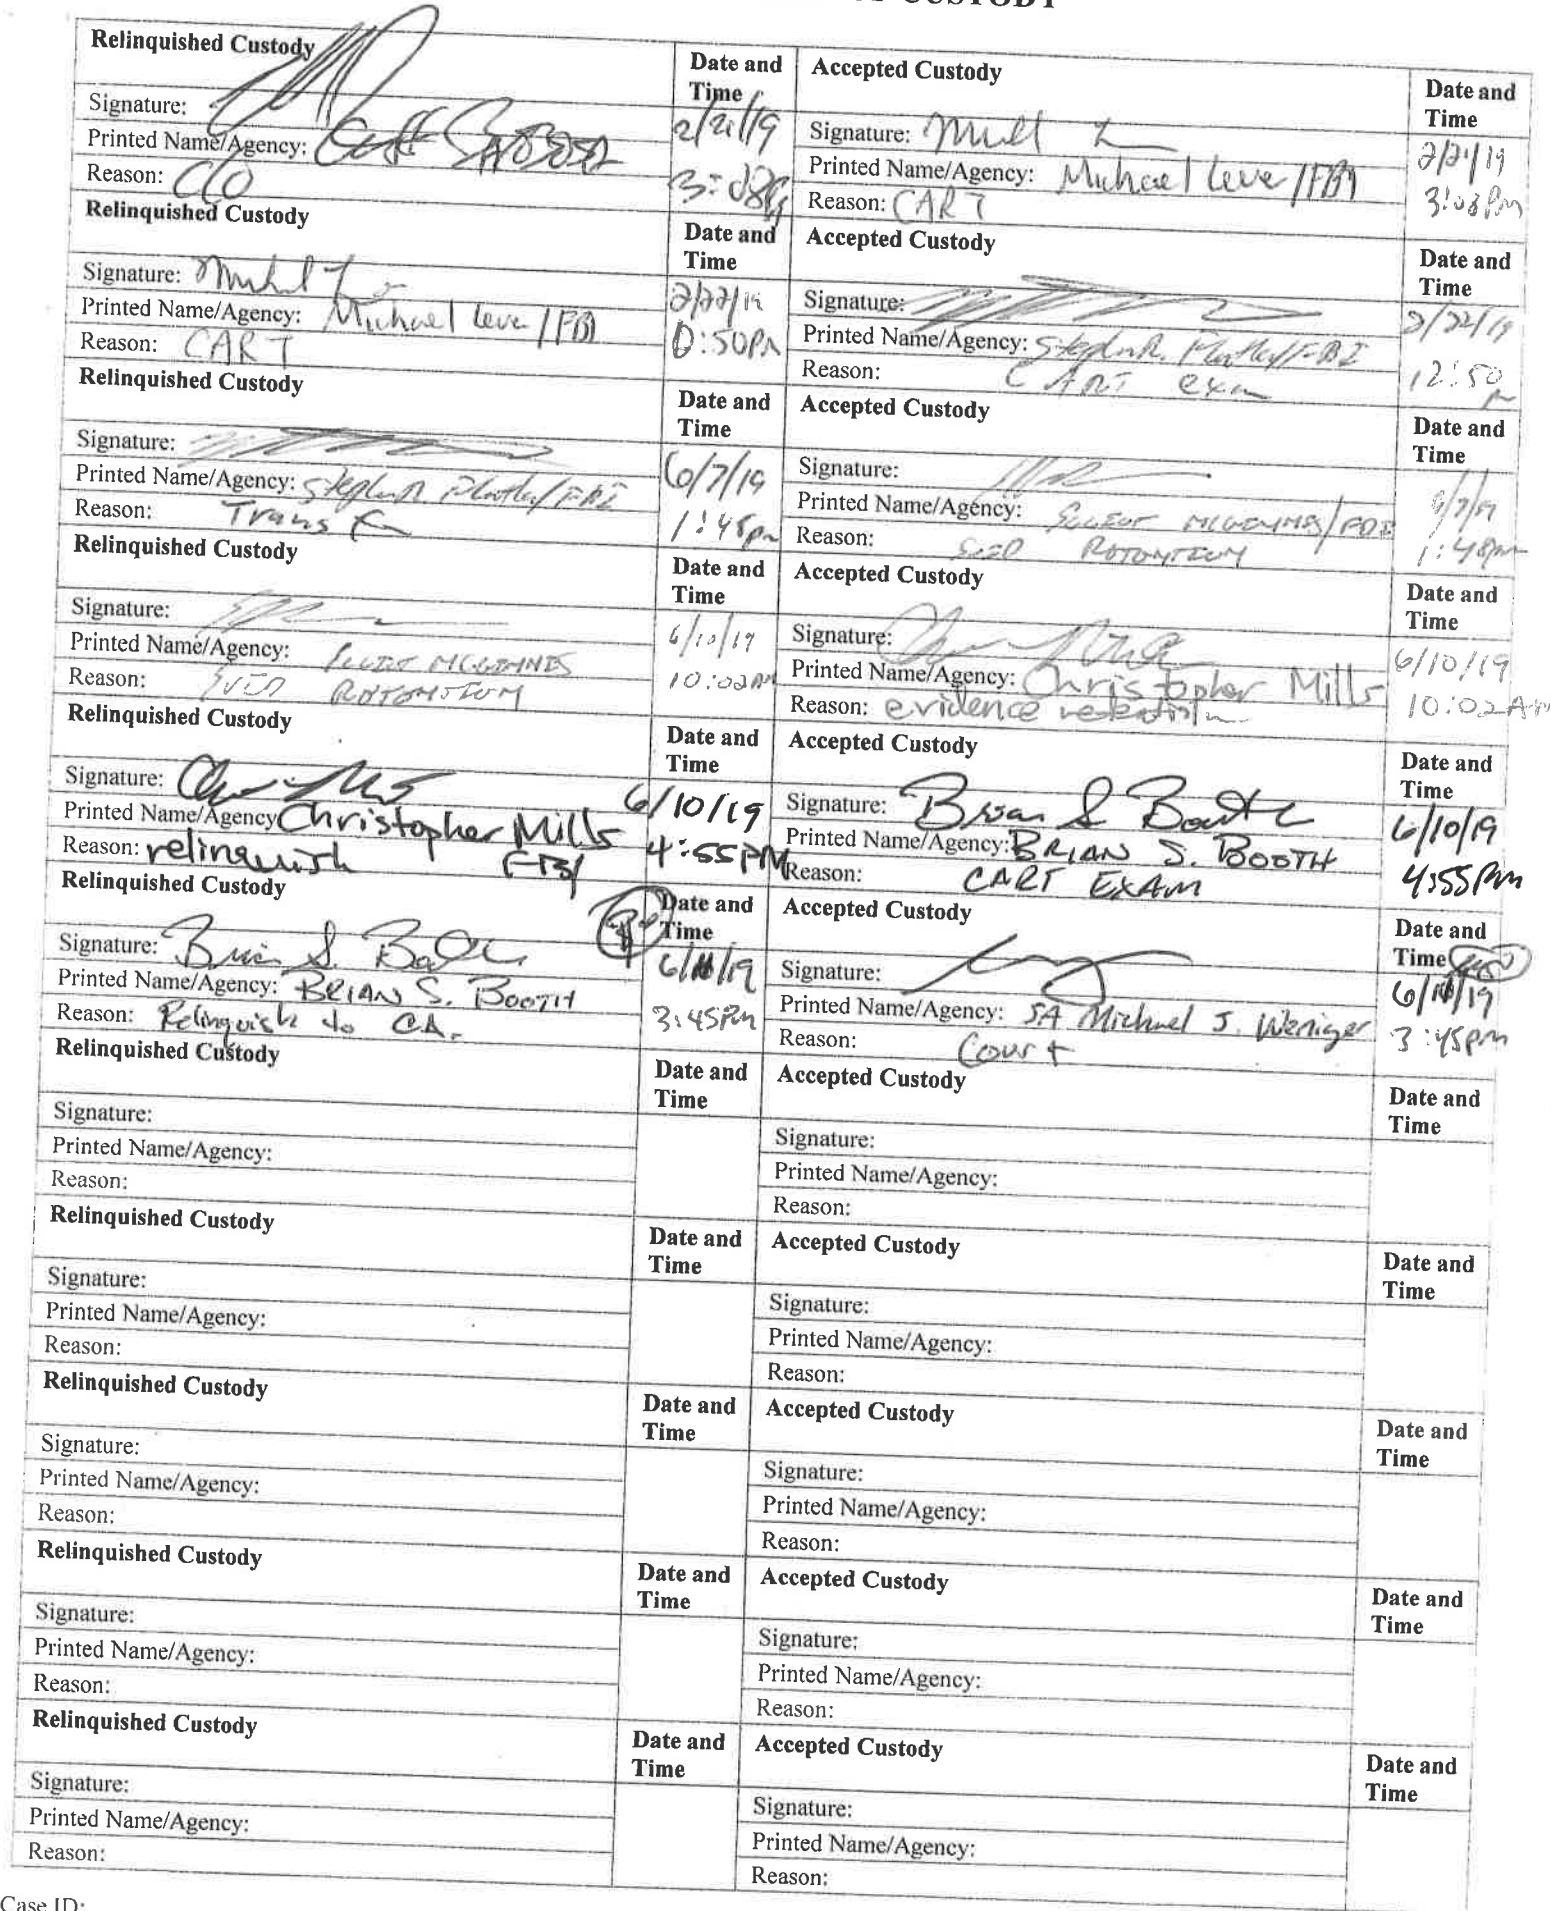 CUSTODY
Relinquished Custody
Date and Time
Accepted Custody
Date and Time
Signature:
Printed Name/Agency:
Reason: C/O
2/21/19
Signature:
Printed Name/Agency: Michael Lever/FBI
Reason: CART
2/21/19
3:08 Pm
Relinquished Custody
Date and Time
Accepted Custody
Date and Time
Signature:
Printed Name/Agency: Michael Lever/FBI
Reason: CART
2/22/19
:50Pm
Signature:
Printed Name/Agency: Stephen R. /FBI
Reason: CART exam
2/22/19
12:50
Relinquished Custody
Date and Time
Accepted Custody
Date and Time
Signature:
Printed Name/Agency: Stephen R /FBI
Reason: Transfer
6/7/19
1:48pm
Signature:
Printed Name/Agency:
Reason:
/7/19
1:48pm
Relinquished Custody
Date and Time
Accepted Custody
Date and Time
Signature:
Printed Name/Agency:
Reason:
6/10/19
10:02AM
Signature:
Printed Name/Agency: Christopher Mills
Reason: evidence
6/10/19
10:02AM
Relinquished Custody
Date and Time
Accepted Custody
Date and Time
Signature:
Printed Name/Agency Christopher Mills
Reason: relinquish FBI
6/10/19
4:55PM
Signature: Brian S Booth
Printed Name/Agency: BRIAN S. BOOTH
Reason: CART EXAM
6/10/19
4:55Pm
Relinquished Custody
Date and Time
Accepted Custody
Date and Time
Signature: Brian S. Booth
Printed Name/Agency: BRIAN S. BOOTH
Reason: Relinquish to CA.
3:45Pm
Signature:
Printed Name/Agency: SA Michael J. Weniger
Reason: Court
3:45pm
Relinquished Custody
Date and Time
Accepted Custody
Date and Time
Signature:
Printed Name/Agency:
Reason:
Signature:
Printed Name/Agency:
Reason:
Relinquished Custody
Date and Time
Accepted Custody
Date and Time
Signature:
Printed Name/Agency:
Reason:
Signature:
Printed Name/Agency:
Reason:
Relinquished Custody
Date and Time
Accepted Custody
Date and Time
Signature:
Printed Name/Agency:
Reason:
Signature:
Printed Name/Agency:
Reason:
Relinquished Custody
Date and Time
Accepted Custody
Date and Time
Signature:
Printed Name/Agency:
Reason:
Signature:
Printed Name/Agency:
Reason:
Relinquished Custody
Date and Time
Accepted Custody
Date and Time
Signature:
Printed Name/Agency:
Reason:
Signature:
Printed Name/Agency:
Reason:
Case ID: